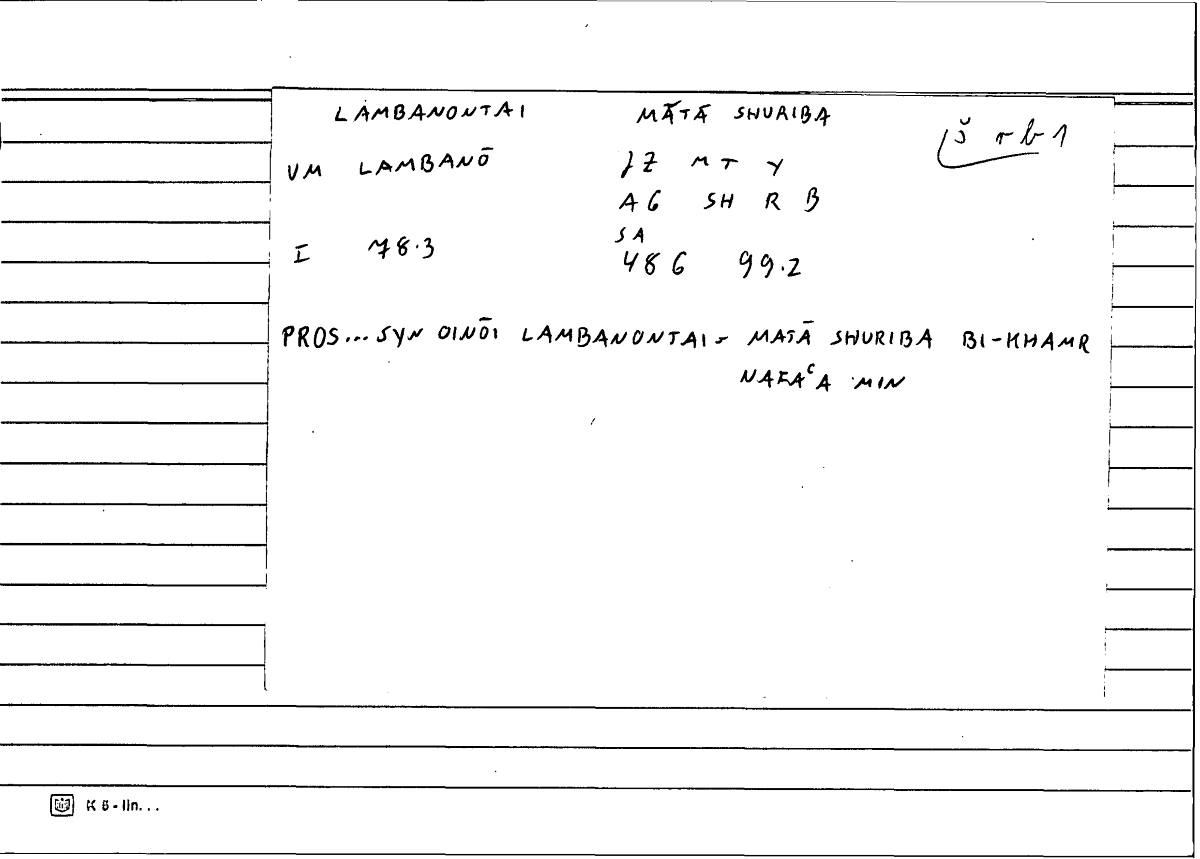 LAMBANONTAI MĀTĀ SHURIBA š r b 1
VM LAMBANŌ JZ M T Y
AG SH R B
SA
I 78.3 486 99.2
PROS... SYN OINŌI LAMBANONTAI - MATĀ SHURIBA BI-KHAMR
NAFAᶜA MIN
K 8 - lin...